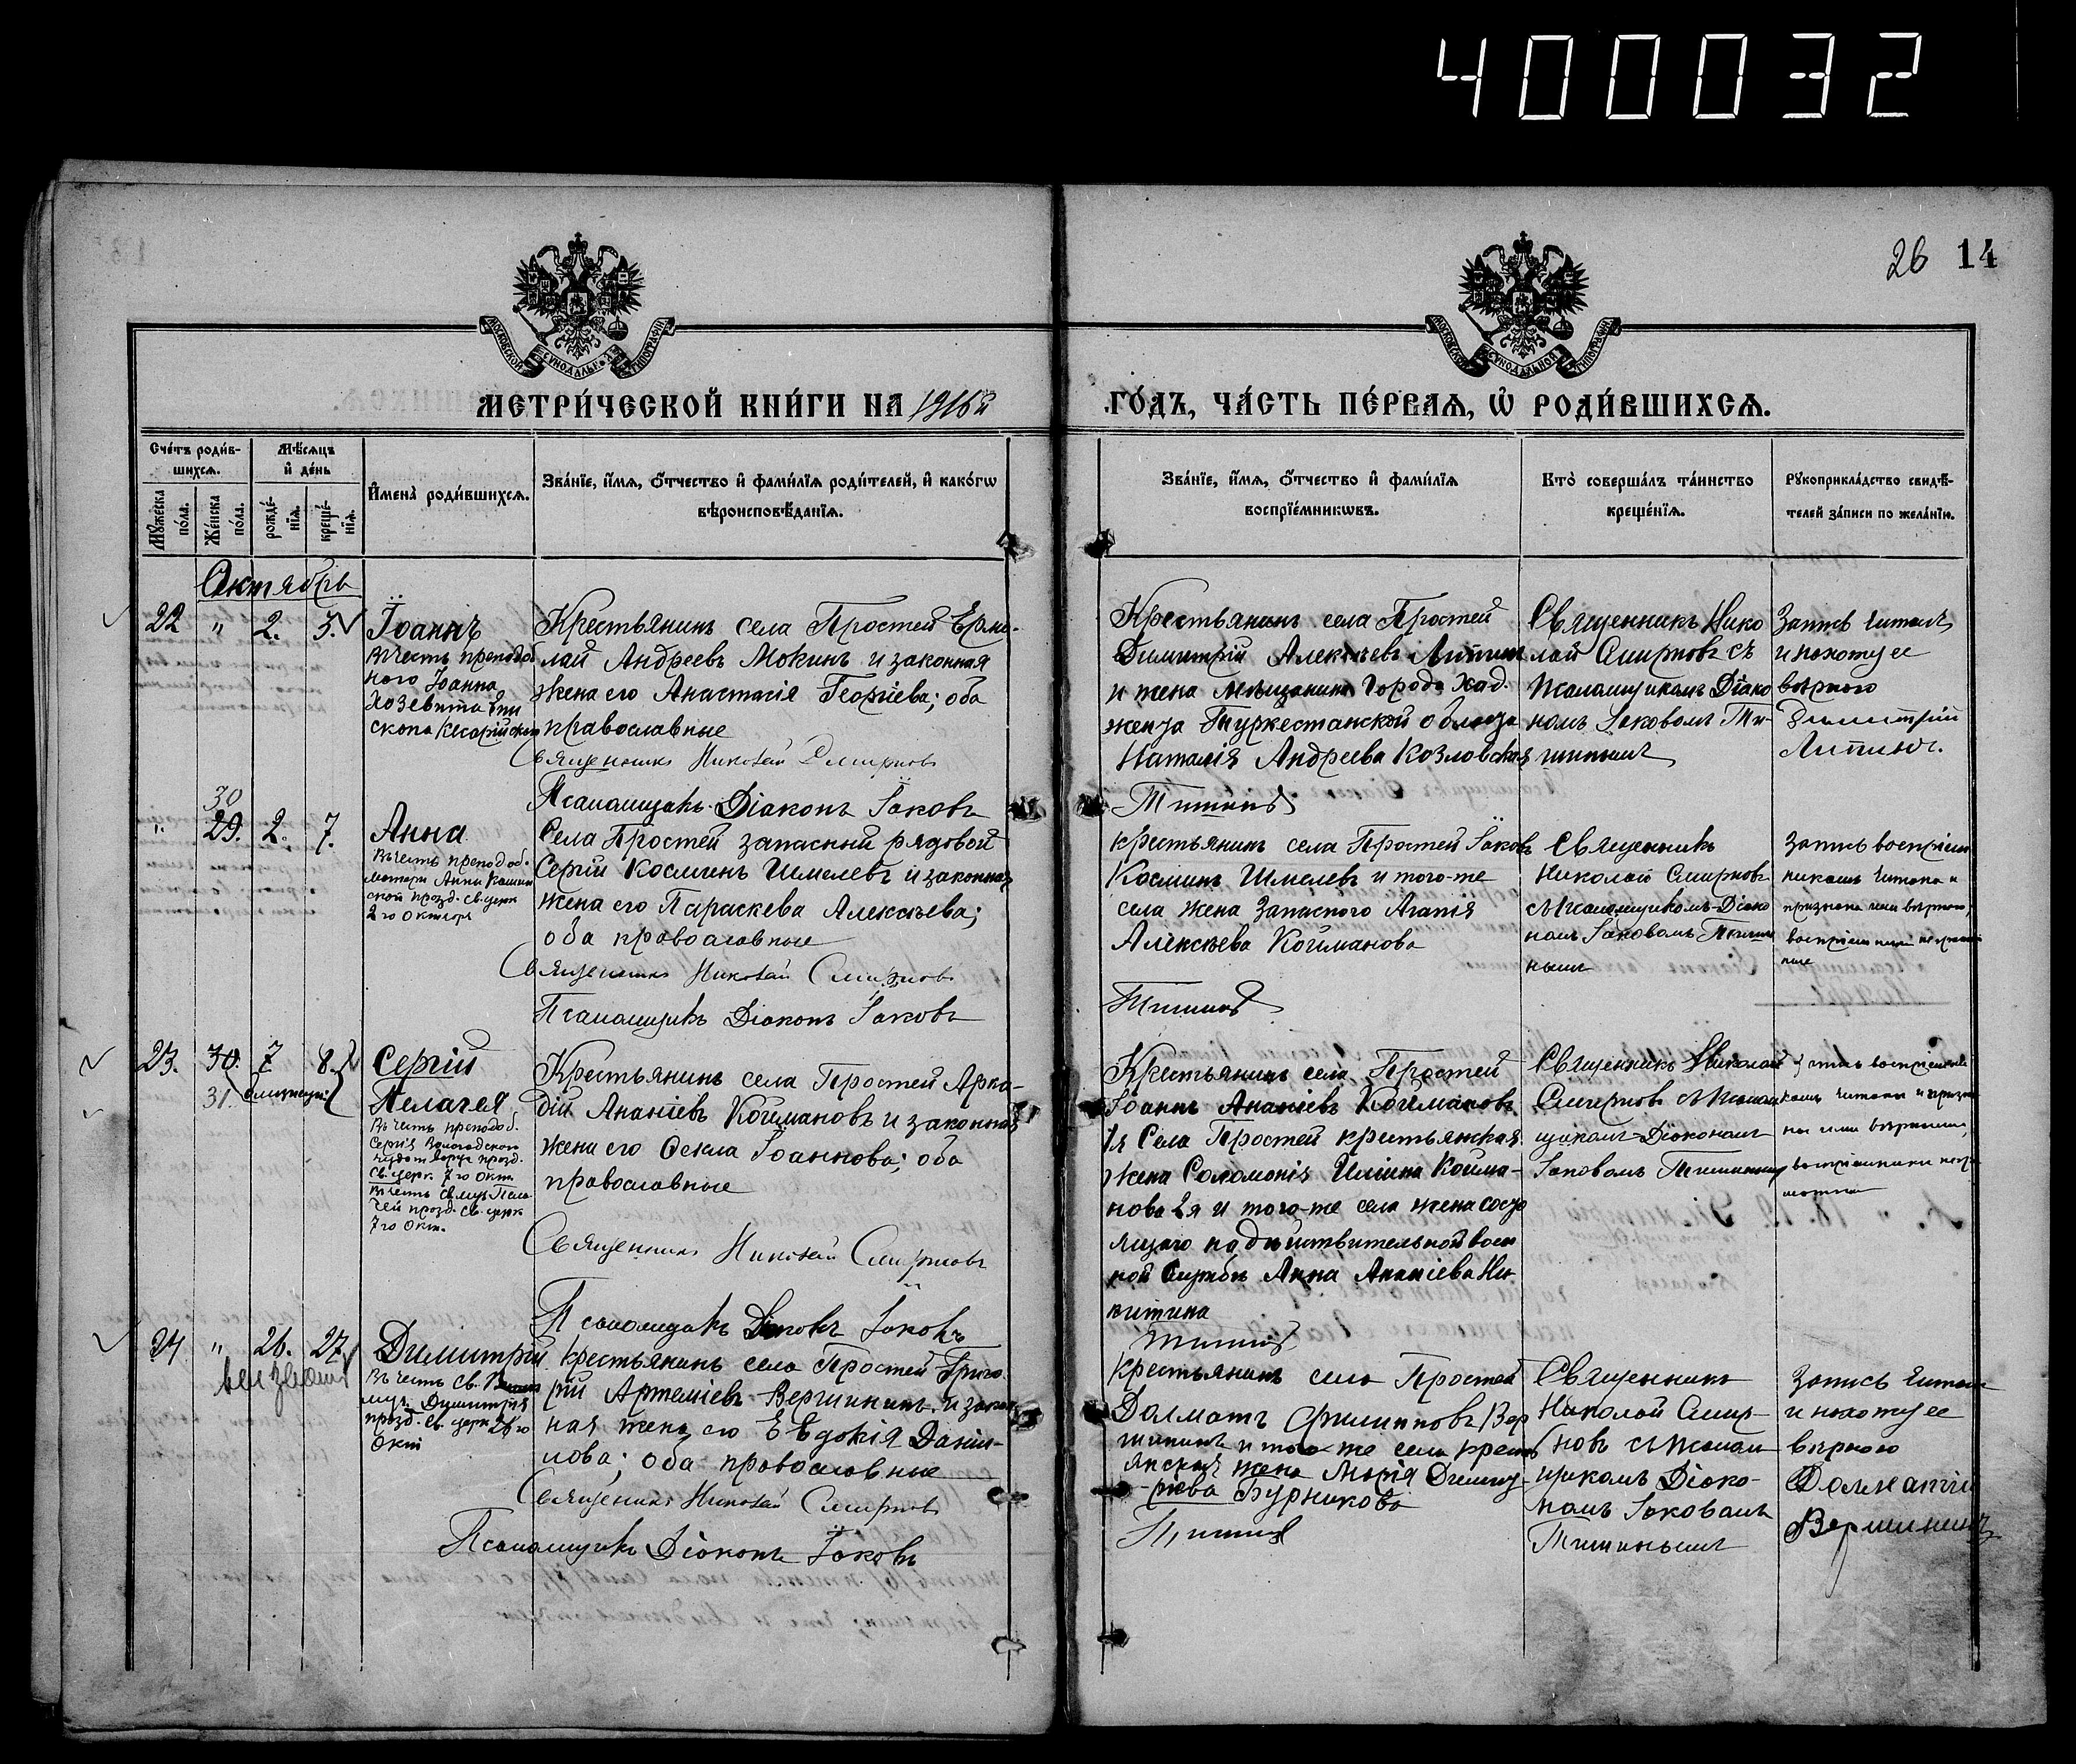 400032
26 14
МОСКОВСКОЙ СѴНОДАЛЬНОЙ ТИПОГРАФІИ
МОСКОВСКОЙ СѴНОДАЛЬНОЙ ТИПОГРАФІИ
МЕТРИ́ЧЕСКОЙ КНИ́ГИ НА 1916й ГО́ДЪ, ЧА́СТЬ ПЕ́РВАѦ, Ѡ҆ РОДИ́ВШИХСѦ.
Сче́тъ роди́в-
шихсѧ.
Мѣ́сѧцъ
и҆ де́нь
Мꙋ́жеска
по́ла.
Же́нска
по́ла.
рожде́-
нїѧ.
креще́-
нїѧ.
И҆мена̀ роди́вшихсѧ.
Зва́нїе, и҆́мѧ, ѻ҆́тчество и҆ фами́лїѧ роди́телей, и҆ како́гѡ
вѣроисповѣ́данїѧ.
Зва́нїе, и҆́мѧ, ѻ҆́тчество и҆ фами́лїѧ
воспрїе́мникѡвъ.
Кто̀ соверша́лъ та́инство
креще́нїѧ.
Рꙋкоприкла́дство свидѣ́-
телей за́писи по жела́нїю.
Октябрь
22 " 2. 3.
Іоаннъ
Въ честь преподоб
наго Іоанна
Хозевита Епи
скопа Кесарійскаго
Крестьянинъ села Простей Ермо-
лай Андреевъ Мокинъ и законная
жена его Анастасія Георгіева; оба
православные
Священникъ Николай Смирновъ
Псаломщикъ Діаконъ Іаковъ
Крестьянинъ села Простей
Димитрій Алексѣевъ Липин
и жена мѣщанина города Ход-
жента Туркестанской области
Наталія Андреева Козловская
Тишинъ
Священникъ Нико
лай Смирновъ съ
Псаломщикомъ Діако
номъ Іаковомъ Ти-
шинымъ
Запись читалъ
и нахожу ее
вѣрною
Димитрій
Липинъ.
" 30
29. 2. 7.
Анна
Въ честь преподоб.
матери Анны Кашин
ской празд. Св. церк
2го Октября
Села Простей запасный рядовой
Сергій Косминъ Шмелевъ и законная
жена его Параскева Алексѣева;
оба православные
Священникъ Николай Смирновъ
Псаломщикъ Діаконъ Іаковъ
Крестьянинъ села Простей Іаковъ
Косминъ Шмелевъ и того-же
села жена запасного Агапія
Алексѣева Койманова
Тишинъ
Священникъ
Николай Смирновъ
съ Псаломщикомъ Діако
номъ Іаковомъ Тиши
нымъ
Запись воспріем
никамъ читана и
признана ими вѣрною,
воспріемники неграмот
ные
23. 30. 7 8.
31. близнецы
Сергій
Пелагея
Въ честь преподоб.
Сергія Вологодскаго
чудотворца празд.
Св. церк 7го Окт.
Въ честь Св. муч. Пела
геи празд. Св. церк
7го Окт.
Крестьянинъ села Простей Арка-
дій Ананіевъ Коймановъ и законная
жена его Ѳекла Іоаннова; оба
православные
Священникъ Николай Смирновъ
Псаломщикъ Діаконъ Іаковъ
Крестьянинъ села Простей
Іоаннъ Ананіевъ Коймановъ
1я Села Простей крестьянская
жена Соломонія Ильина Койма-
нова 2я и того-же села жена состо
ящаго на дѣйствительной воен
ной службѣ Анна Ананіева Ни-
китина
Тишинъ
Священникъ Николай
Смирновъ съ Псалом
щикомъ Діакономъ
Іаковомъ Тишинымъ
воспріемни
камъ читана и призна
на ими вѣрною,
воспріемники негра
мотные
24 " 26. 27
Димитрій
Въ честь Св. Велико
муч. Димитрія
празд. Св. церк 26го
Окт
Крестьянинъ села Простей Григо
рій Артеміевъ Вершининъ и закон
ная жена его Евдокія Дании-
лова; оба православные
Священникъ Николай Смирновъ
Псаломщикъ Діаконъ Іаковъ
Крестьянинъ села Простей
Далматъ Филипповъ Вер
шининъ и того же села кресть
янская жена Марія Димит-
ріева Бурникова
Тишинъ
Священникъ
Николай Смир-
новъ съ Псалом
щикомъ Діако-
номъ Іаковомъ
Тишинымъ
Запись читалъ
и нахожу ее
вѣрною
Далматій
Вершининъ